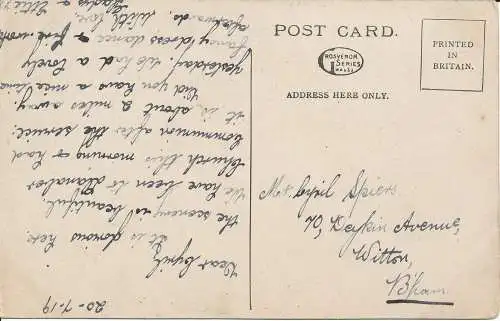 POST CARD.
GROSVENOR
SERIES
PRINTED
IN
BRITAIN.
ADDRESS HERE ONLY.
Mr. Cyril Spiers
70, Deykin Avenue,
Witton,
B'ham.
20-7-19
Dear Cyril,
It is glorious here
the scenery is beautiful.
We have been to Llanaber
Church this morning & had
Communion after the service.
it is about 2 miles away.
Did you have a nice time
yesterday, we had a lovely
fancy dress dance & fire work
afterwards. With love